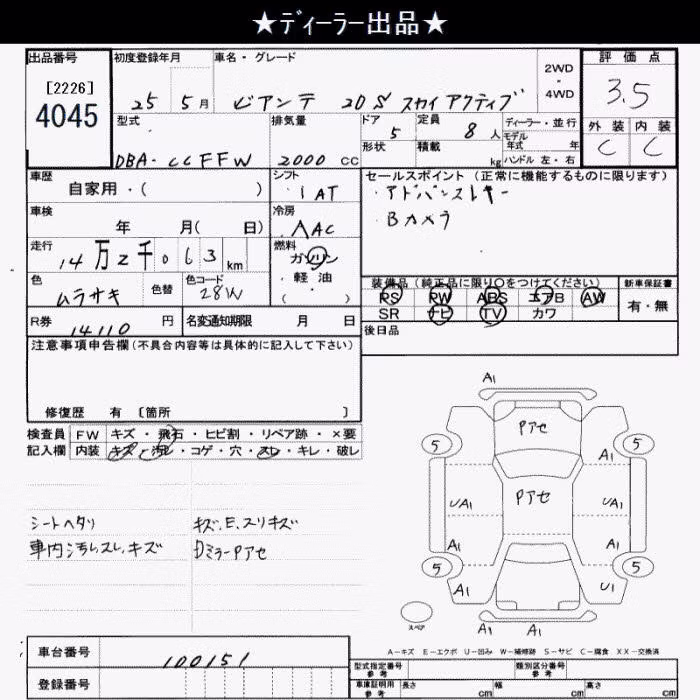 ★ディーラー出品★
出品番号
[2226]
4045
初度登録年月
25 5月
車名・グレード
ビアンテ 20S スカイアクティブ
2WD
・
4WD
評価点
3.5
外装 内装
C C
型式
DBA-CCFFW
排気量
2000 CC
ドア
5
形状
定員
8 人
積載
kg
ディーラー・並行
モデル
年式 年
ハンドル 左・右
車歴
自家用・( )
シフト
IAT
セールスポイント (正常に機能するものに限ります)
・アドバンストキー
・Bカメラ
車検
年 月( 日)
冷房
AAC
走行
14万2千063km
燃料
ガソリン
・軽油
( )
色
ムラサキ
色替
色コード
28W
装備品 (純正品に限り○をつけてください)
PS PW ABS エアB AW
SR ナビ TV カワ
新車保証書
有・無
R券
14110 円
名変通知期限 月 日
後日品
注意事項申告欄 (不具合内容等は具体的に記入して下さい)
修復歴 有 [箇所 ]
検査員
記入欄
FW キズ・飛石・ヒビ割・リペア跡・×要
内装 キズ・汚れ・コゲ・穴・スレ・キレ・破レ
シートヘタリ
車内汚れスレ、キズ
キズ、E、スリキズ
DミラーPアセ
A1
Pアセ
5
5
A1
Pアセ
UA1
UA1
A1
A1
5
5
A1
U1
スペア
A1
A1
A-キズ E-エクボ U-凹み W-補修跡 S-サビ C-腐食 XX-交換済
車台番号
100151
登録番号
型式指定番号
参考
類別区分番号
参考
車庫証明用
参考
長さ cm
幅 cm
高さ cm